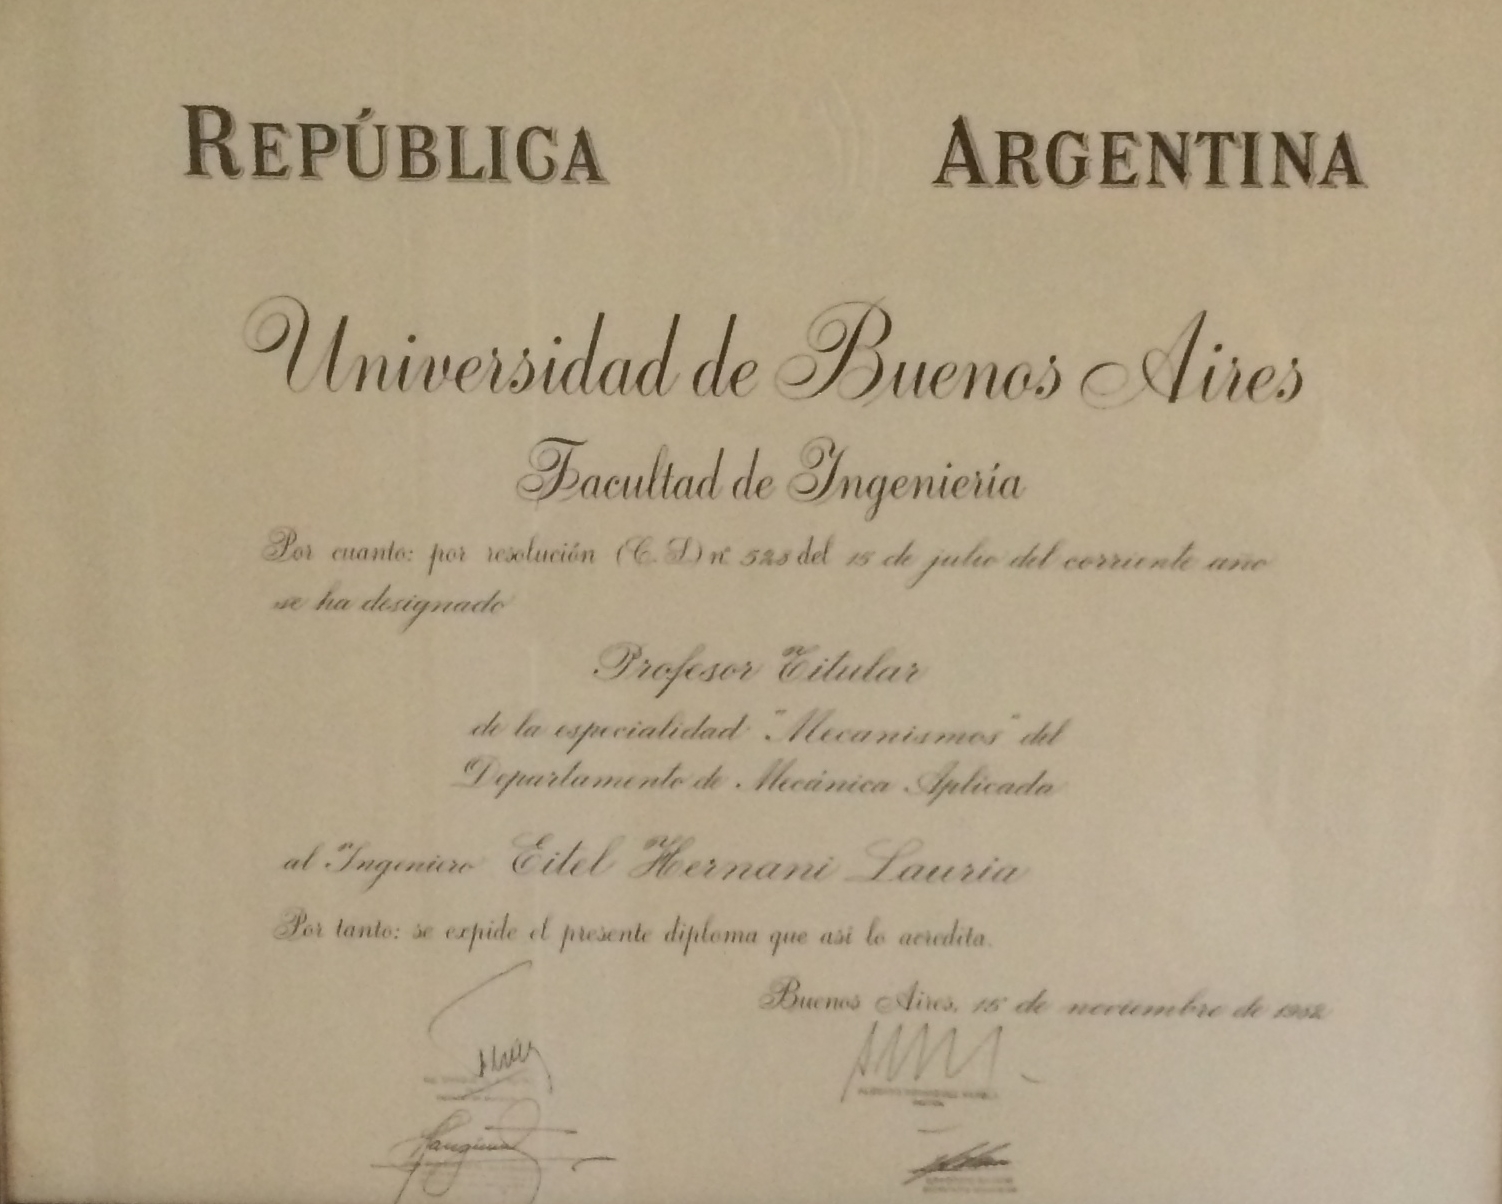 REPÚBLICA ARGENTINA
Universidad de Buenos Aires
Facultad de Ingeniería
Por cuanto: por resolución (C. D.) nº 528 del 15 de julio del corriente año
se ha designado
Profesor Titular
de la especialidad "Mecanismos" del
Departamento de Mecánica Aplicada
al Ingeniero Eitel Hernani Lauria
Por tanto: se expide el presente diploma que así lo acredita.
Buenos Aires, 15 de noviembre de